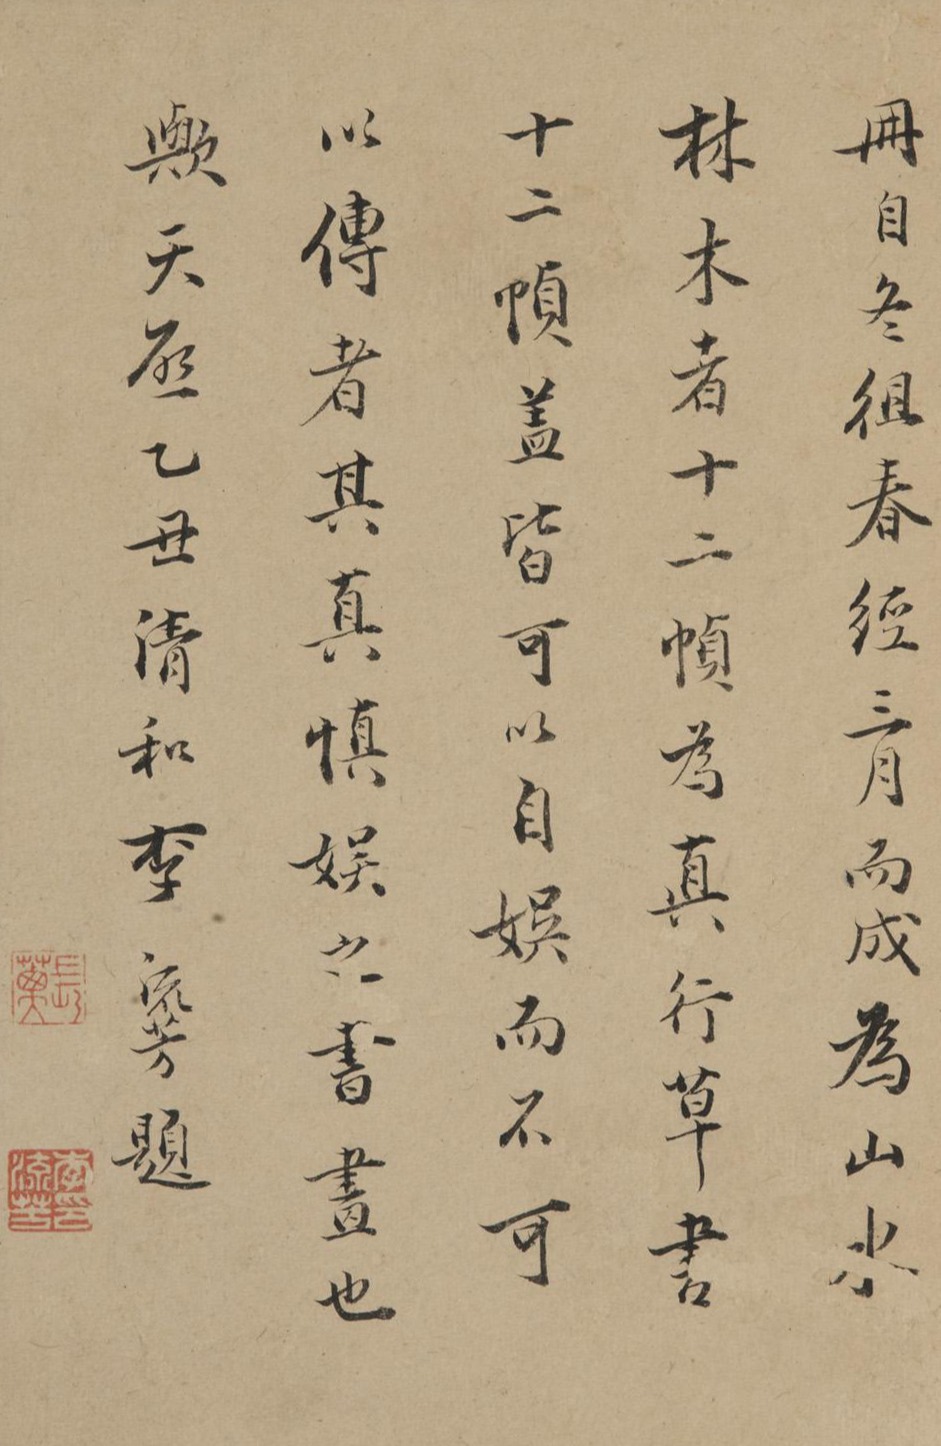 冊自冬徂春經三月而成為山水
林木者十二幀為真行草書
十二幀蓋皆可以自娛而不可
以傳者其真慎娛之書畫也
歟天啟乙丑清和李流芳題
長蘅
李流芳印